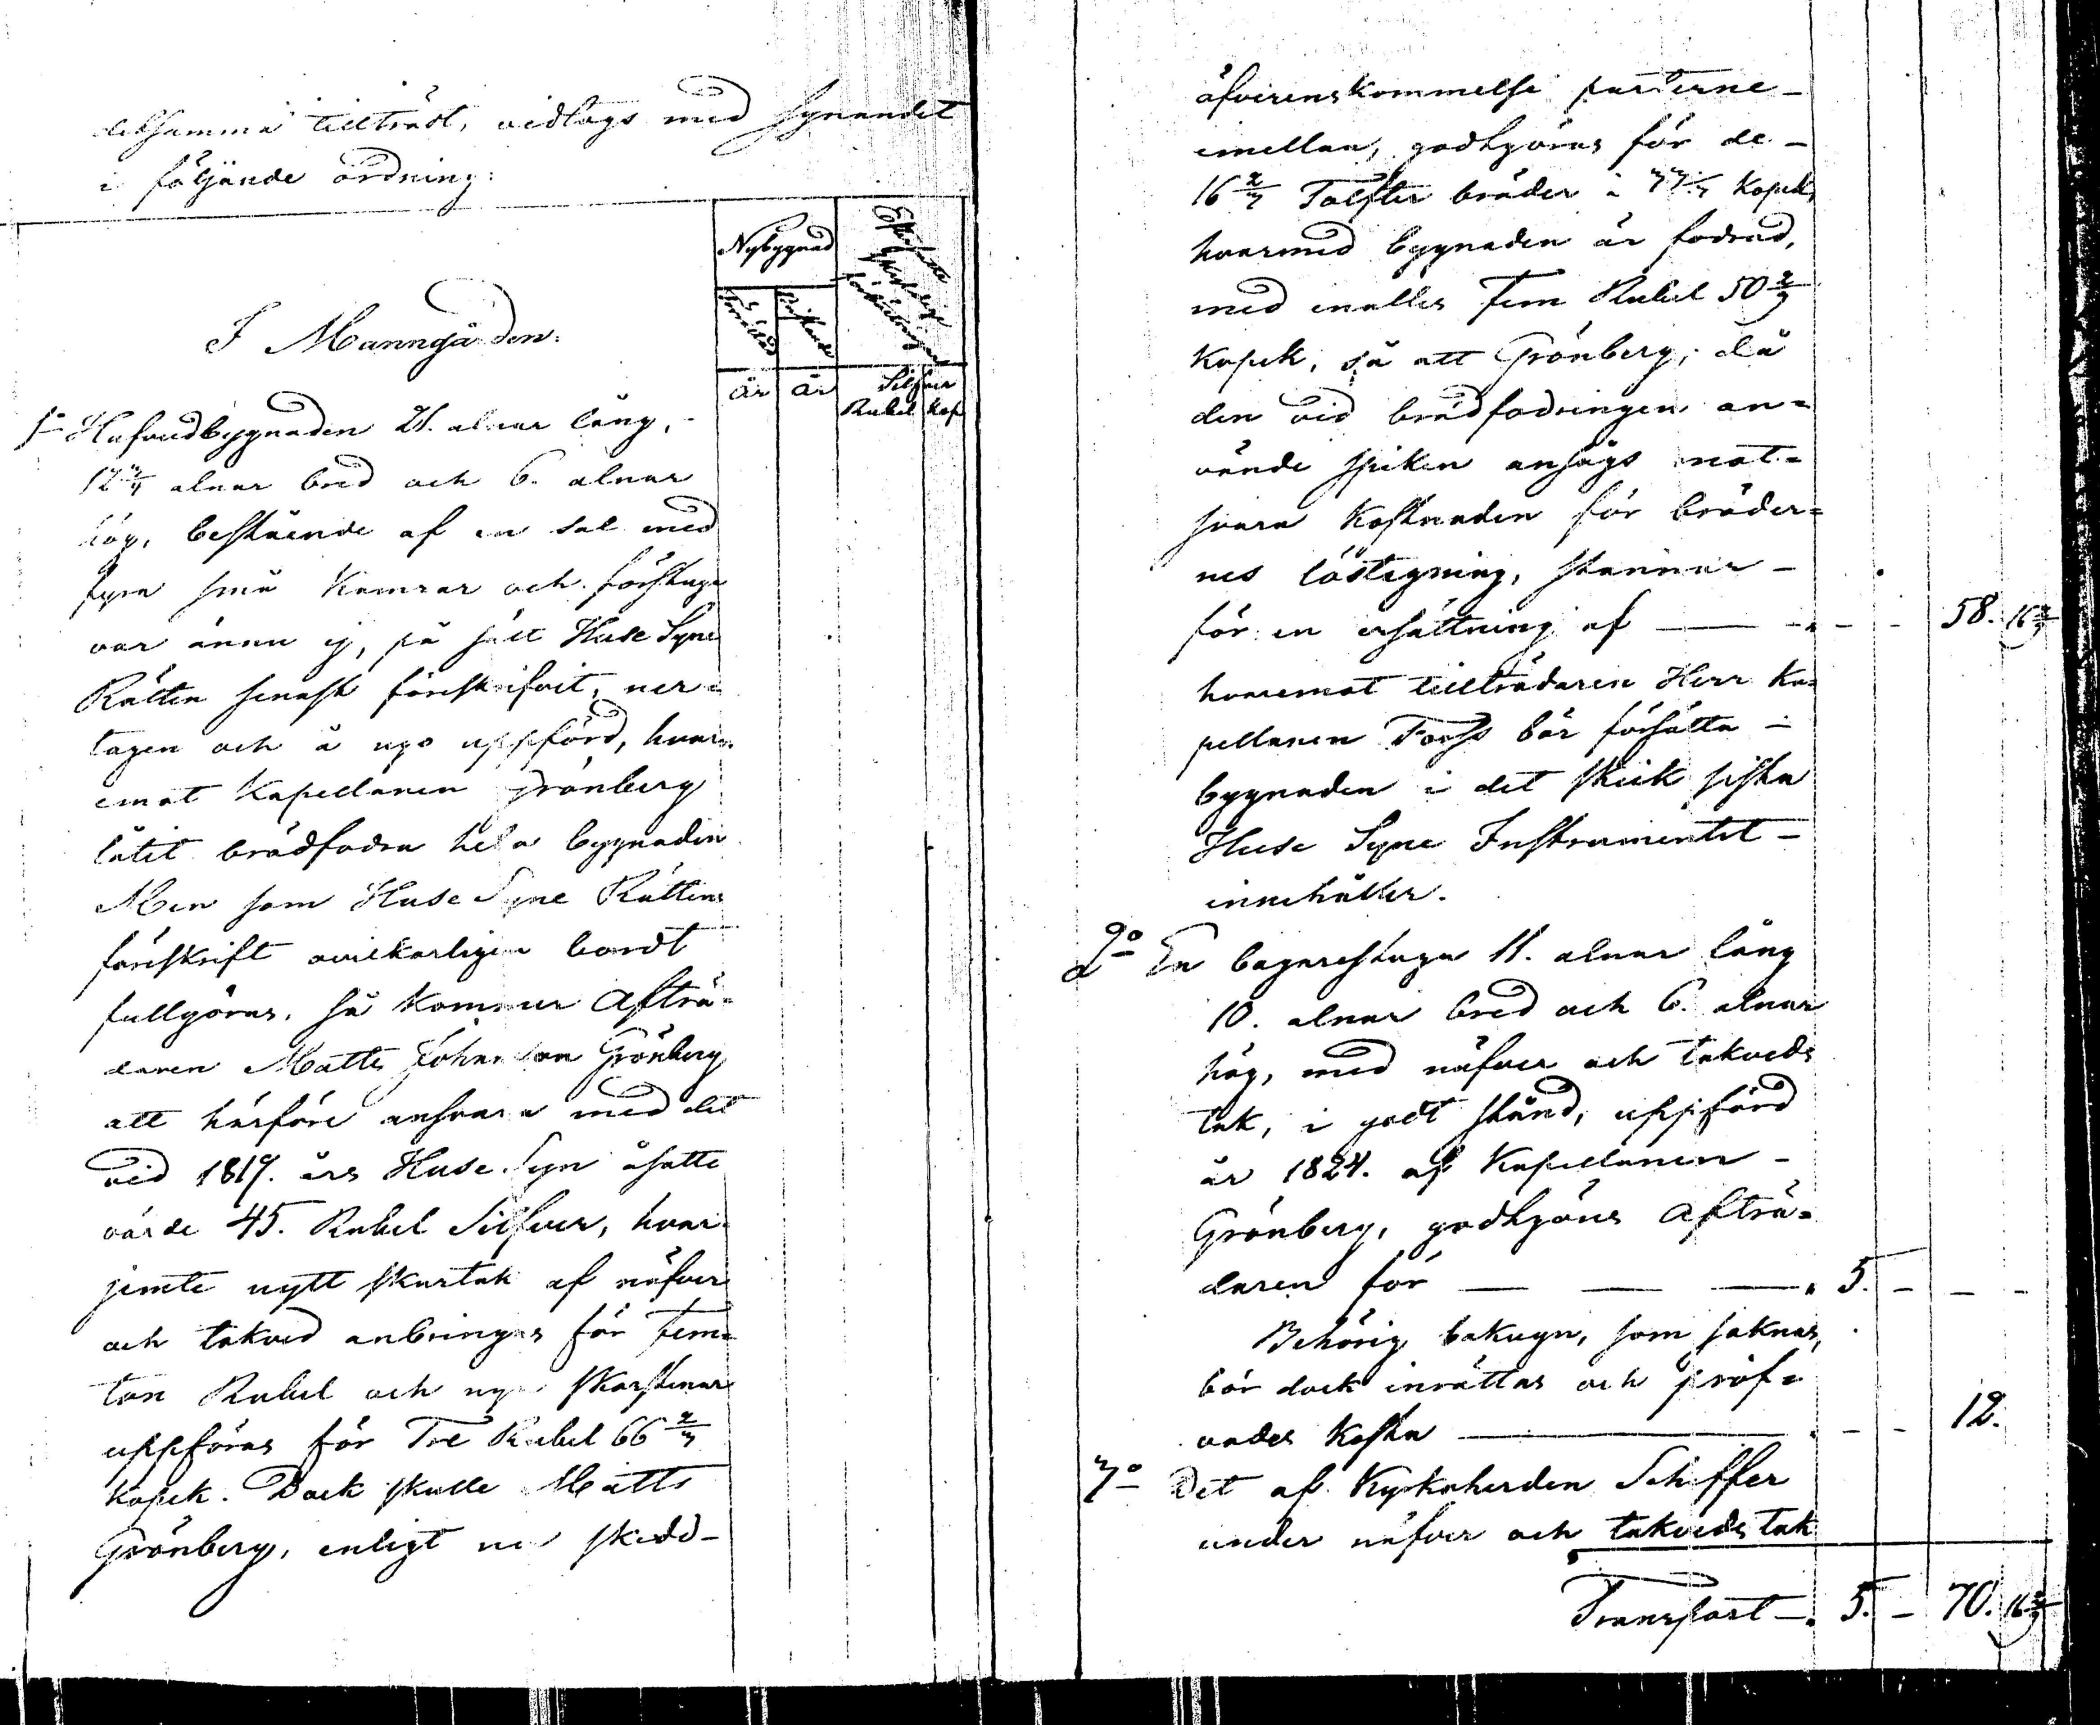 detsamma tillträdt, vidtogs med synandet
i följande ordning:
Nybygnad
år år Silfver
Rubel Kop
I Manngården.
1o Hufvudbygnaden 21. alnar lång,
12 3/4 alnar bred och 6. alnar
hög, bestående af en sal med
fyra små Kamrar och förstuga
var ännu ej, på sätt Huse Syne
Rätten senast föreskrifvit, ner=
tagen och å nyo uppförd, hvar=
emot Kapellanen Grönberg
låtit brädfodra hela bygnaden
Men som Huse Syne Rättens
föreskrift ovilkorligen bordt
fullgöras, så kommer Afträ=
daren Matts Johansson Grönberg
att härföre ansvara med det
vid 1819. års Huse Syn åsatte
värde 45. Rubel Silfver, hvar=
jemte nytt skurtak af näfver
och takved anbringas för fem=
ton Rubel och nya skorstenar
uppföras för Tre Rubel 66 2/3
Kopek. Dock skulle Matts
Grönberg, enligt nu skedd
öfverenskommelse parterne
emellan, godtgöras för de
16 2/3 Tolfter bräder à Kopek,
hvarmed bygnaden är fodrad,
med inalles Fem Rubel 50 2/3
Kopek, så att Grönberg, då
den vid brädfodringen an=
vände spiken ansågs mot=
svara Kostnaden för bräder=
nes löstagning, stannar
för en ersättning af — - - - 58. 16 2/3
hvaremot tillträdaren Herr Ka=
pellanen Forss bör försätta
bygnaden i det skick sista
Huse Syne Instrumentet
innehåller.
2o En bagarestuga 11. alnar lång
10. alnar bred och 6. alnar
hög, med näfver och takveds
tak, i godt stånd, uppförd
år 1824. af Kapellanen
Grönberg, godtgöres Afträ=
daren för — — — 5. - - -
Behörig bakugn, som saknas,
bör dock inrättas och pröf=
vades kosta — - - 12.
3o Det af Kyrkoherden Schiffer
under näfver och takveds tak
Transport —. 5. - 70. 16 2/3